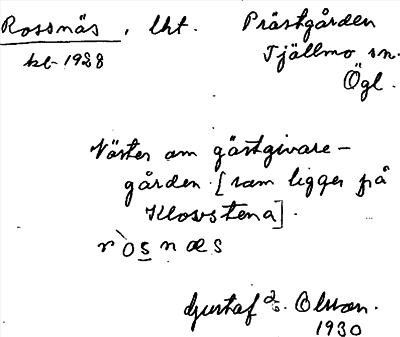 Rossnäs, lht. Prästgården
kb 1928 Tjällmo sn.
Ögl.
Väster om gästgivare-
gården [som ligger på
Klovstena].
ròsnæs
Gustaf Olsson.
1930